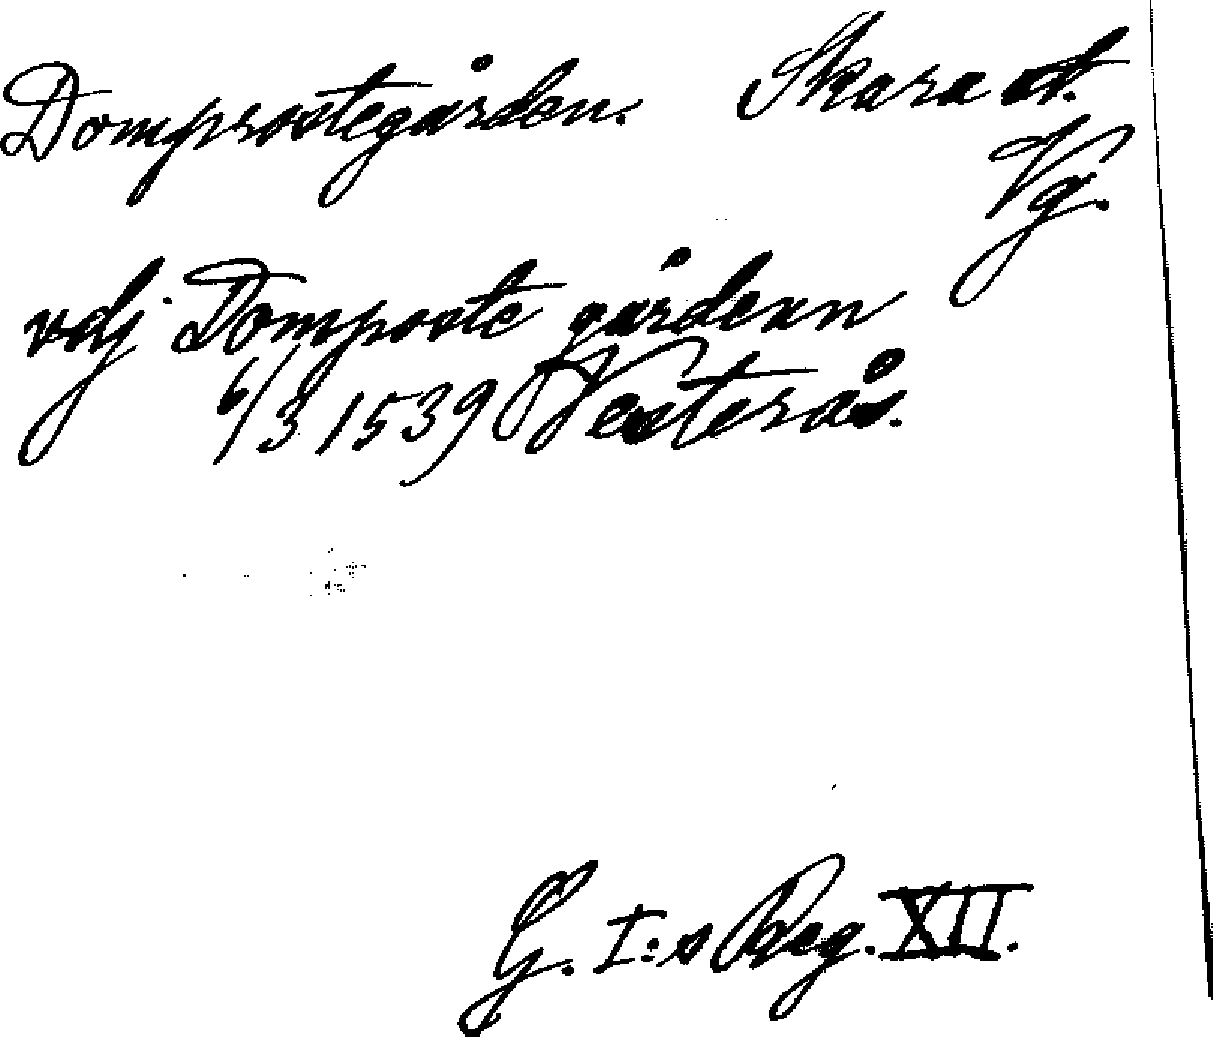 Domprostegården. Skara st.
Vg.
vdj Domposte gårdenn
6/3 1539 Vesterås.
G. I:s Reg. XII.